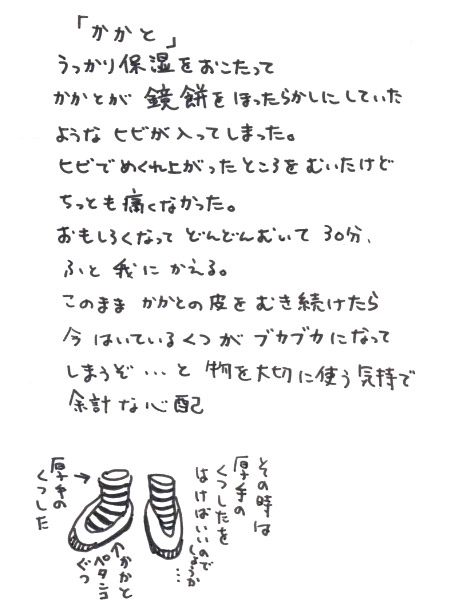 「かかと」
うっかり保湿をおこたって
かかとが鏡餅をほったらかしにしていた
ようなヒビが入ってしまった。
ヒビでめくれ上がったところをむいたけど
ちっとも痛くなかった。
おもしろくなってどんどんむいて30分、
ふと我にかえる。
このままかかとの皮をむき続けたら
今はいているくつがブカブカになって
しまうぞ…と物を大切に使う気持で
余計な心配
その時は
厚手の
くつしたを
はけばいいので
しょうか…
厚手の
くつした
→
↑かかと
ペタンコ
ぐつ